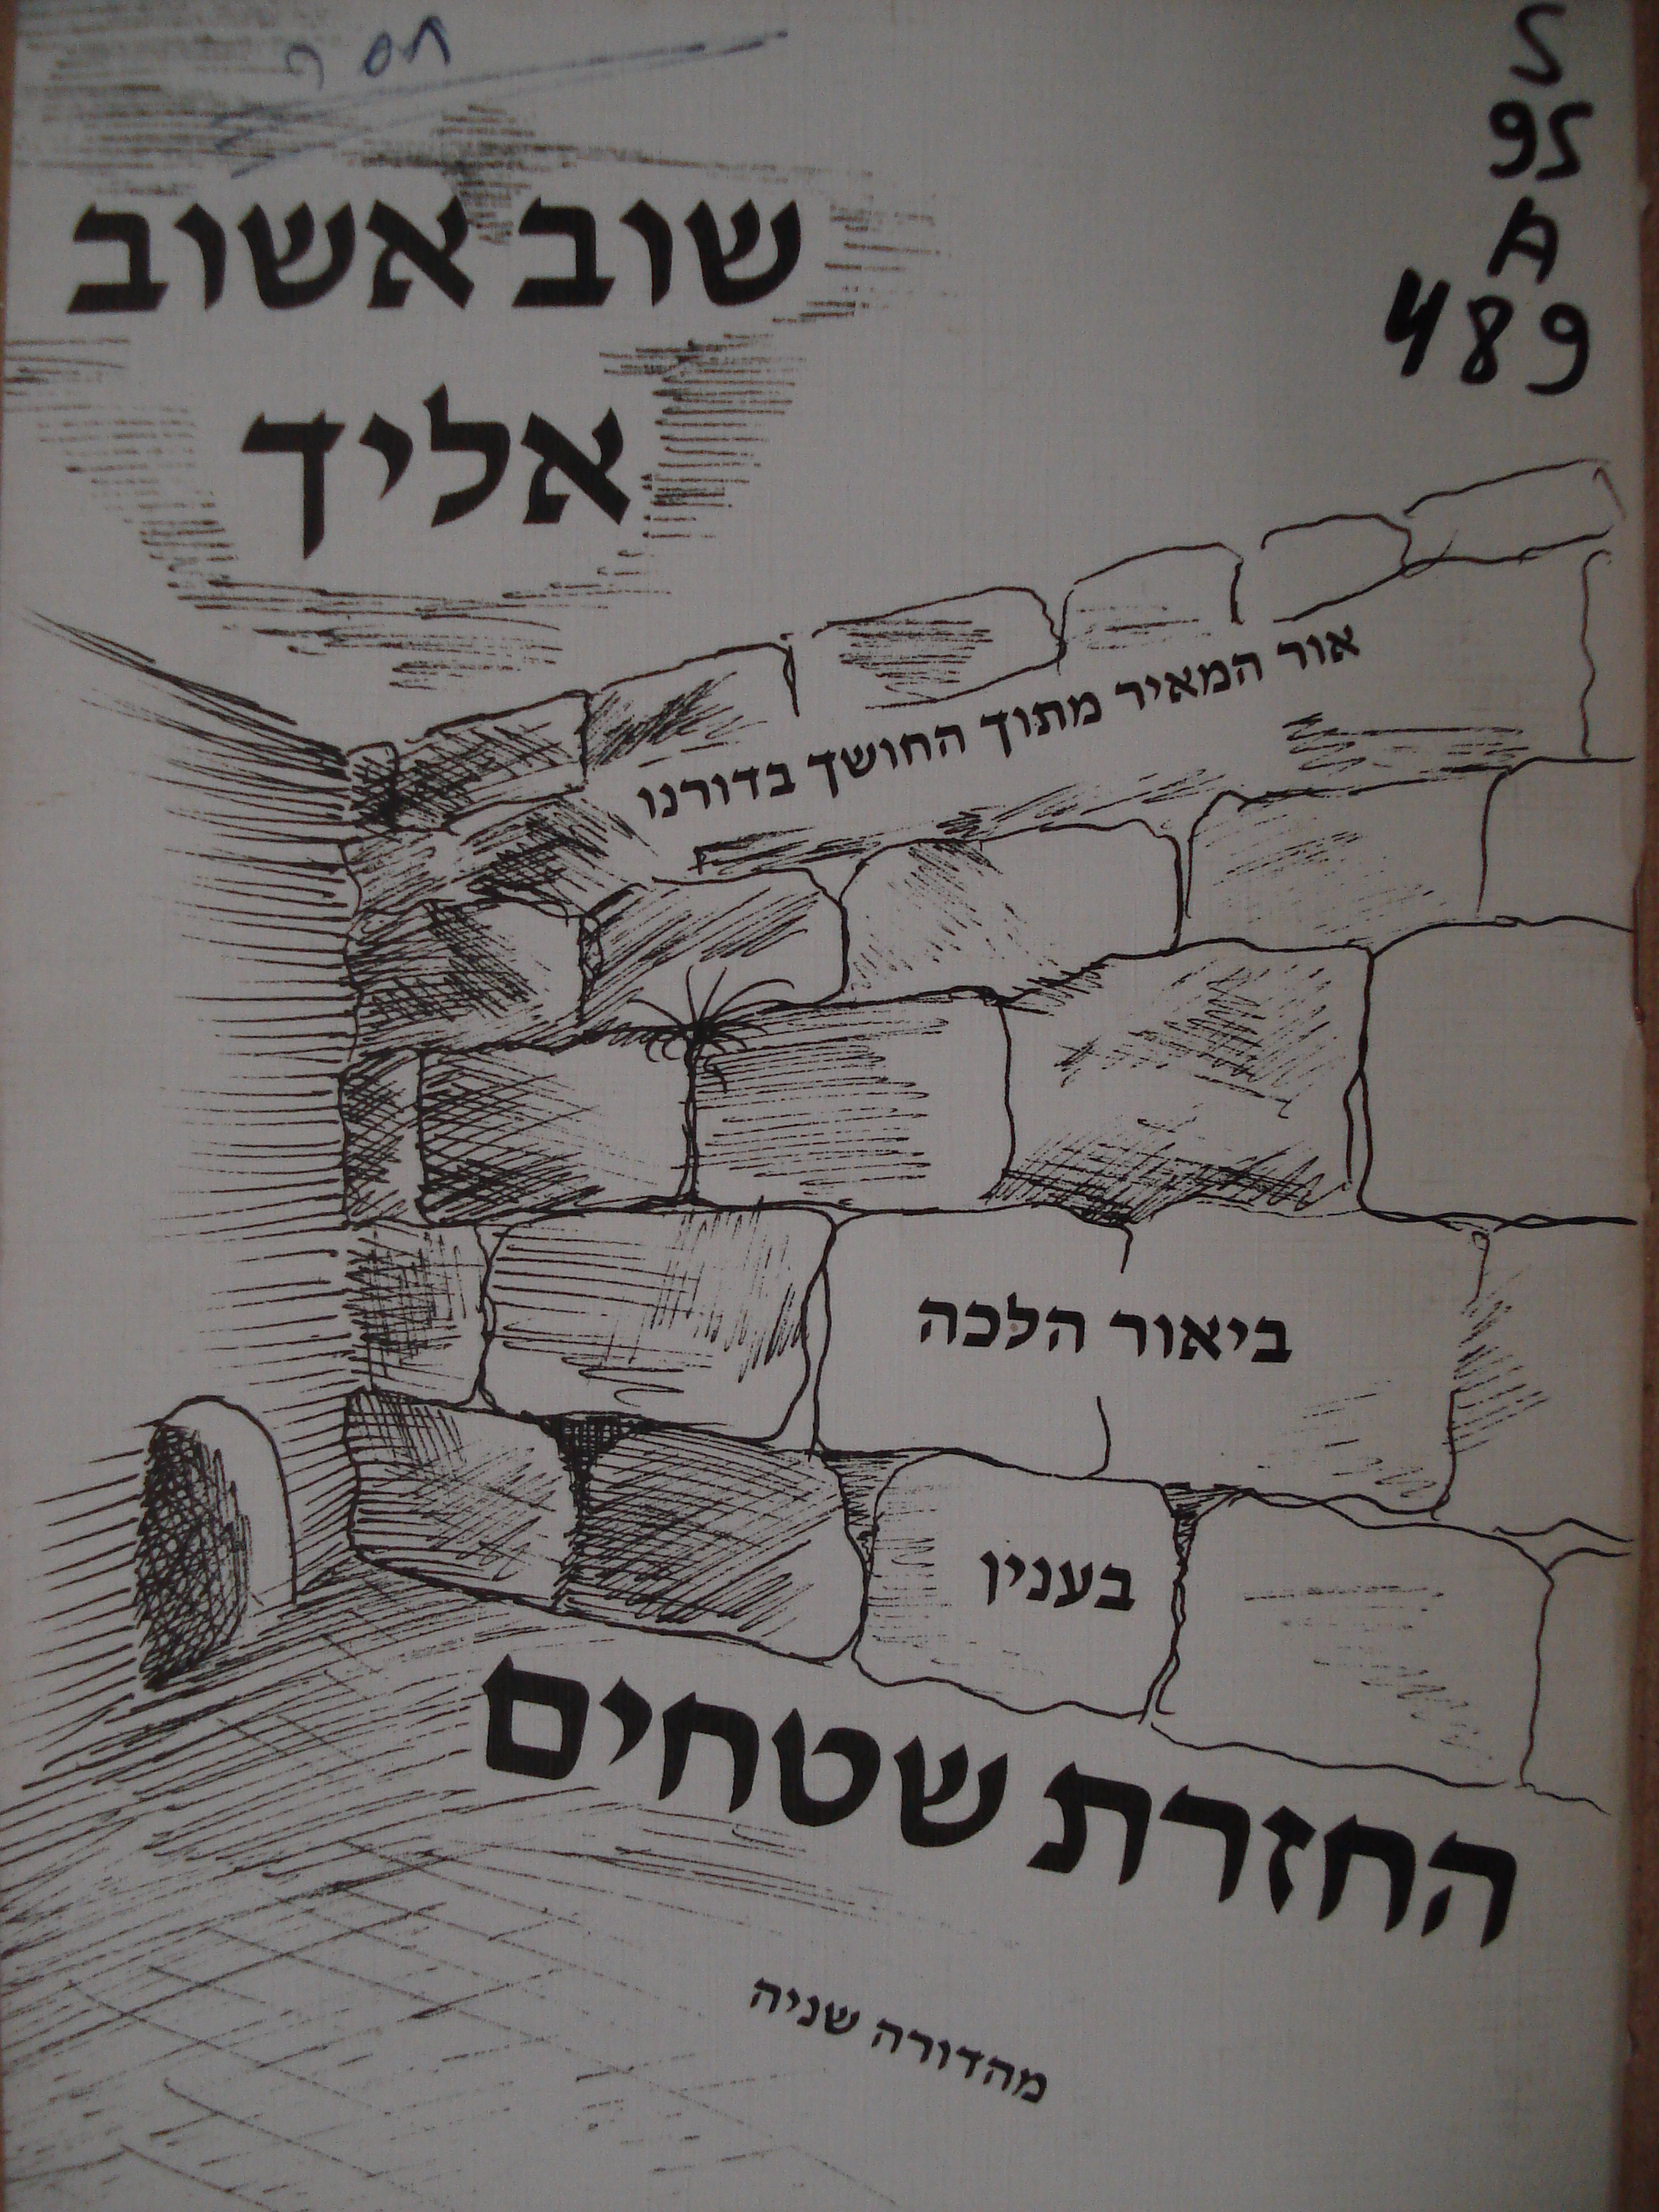 S
95
A
489
שוב אשוב
אליך
אור המאיר מתוך החושך בדורנו
ביאור הלכה
בענין
החזרת שטחים
מהדורה שניה